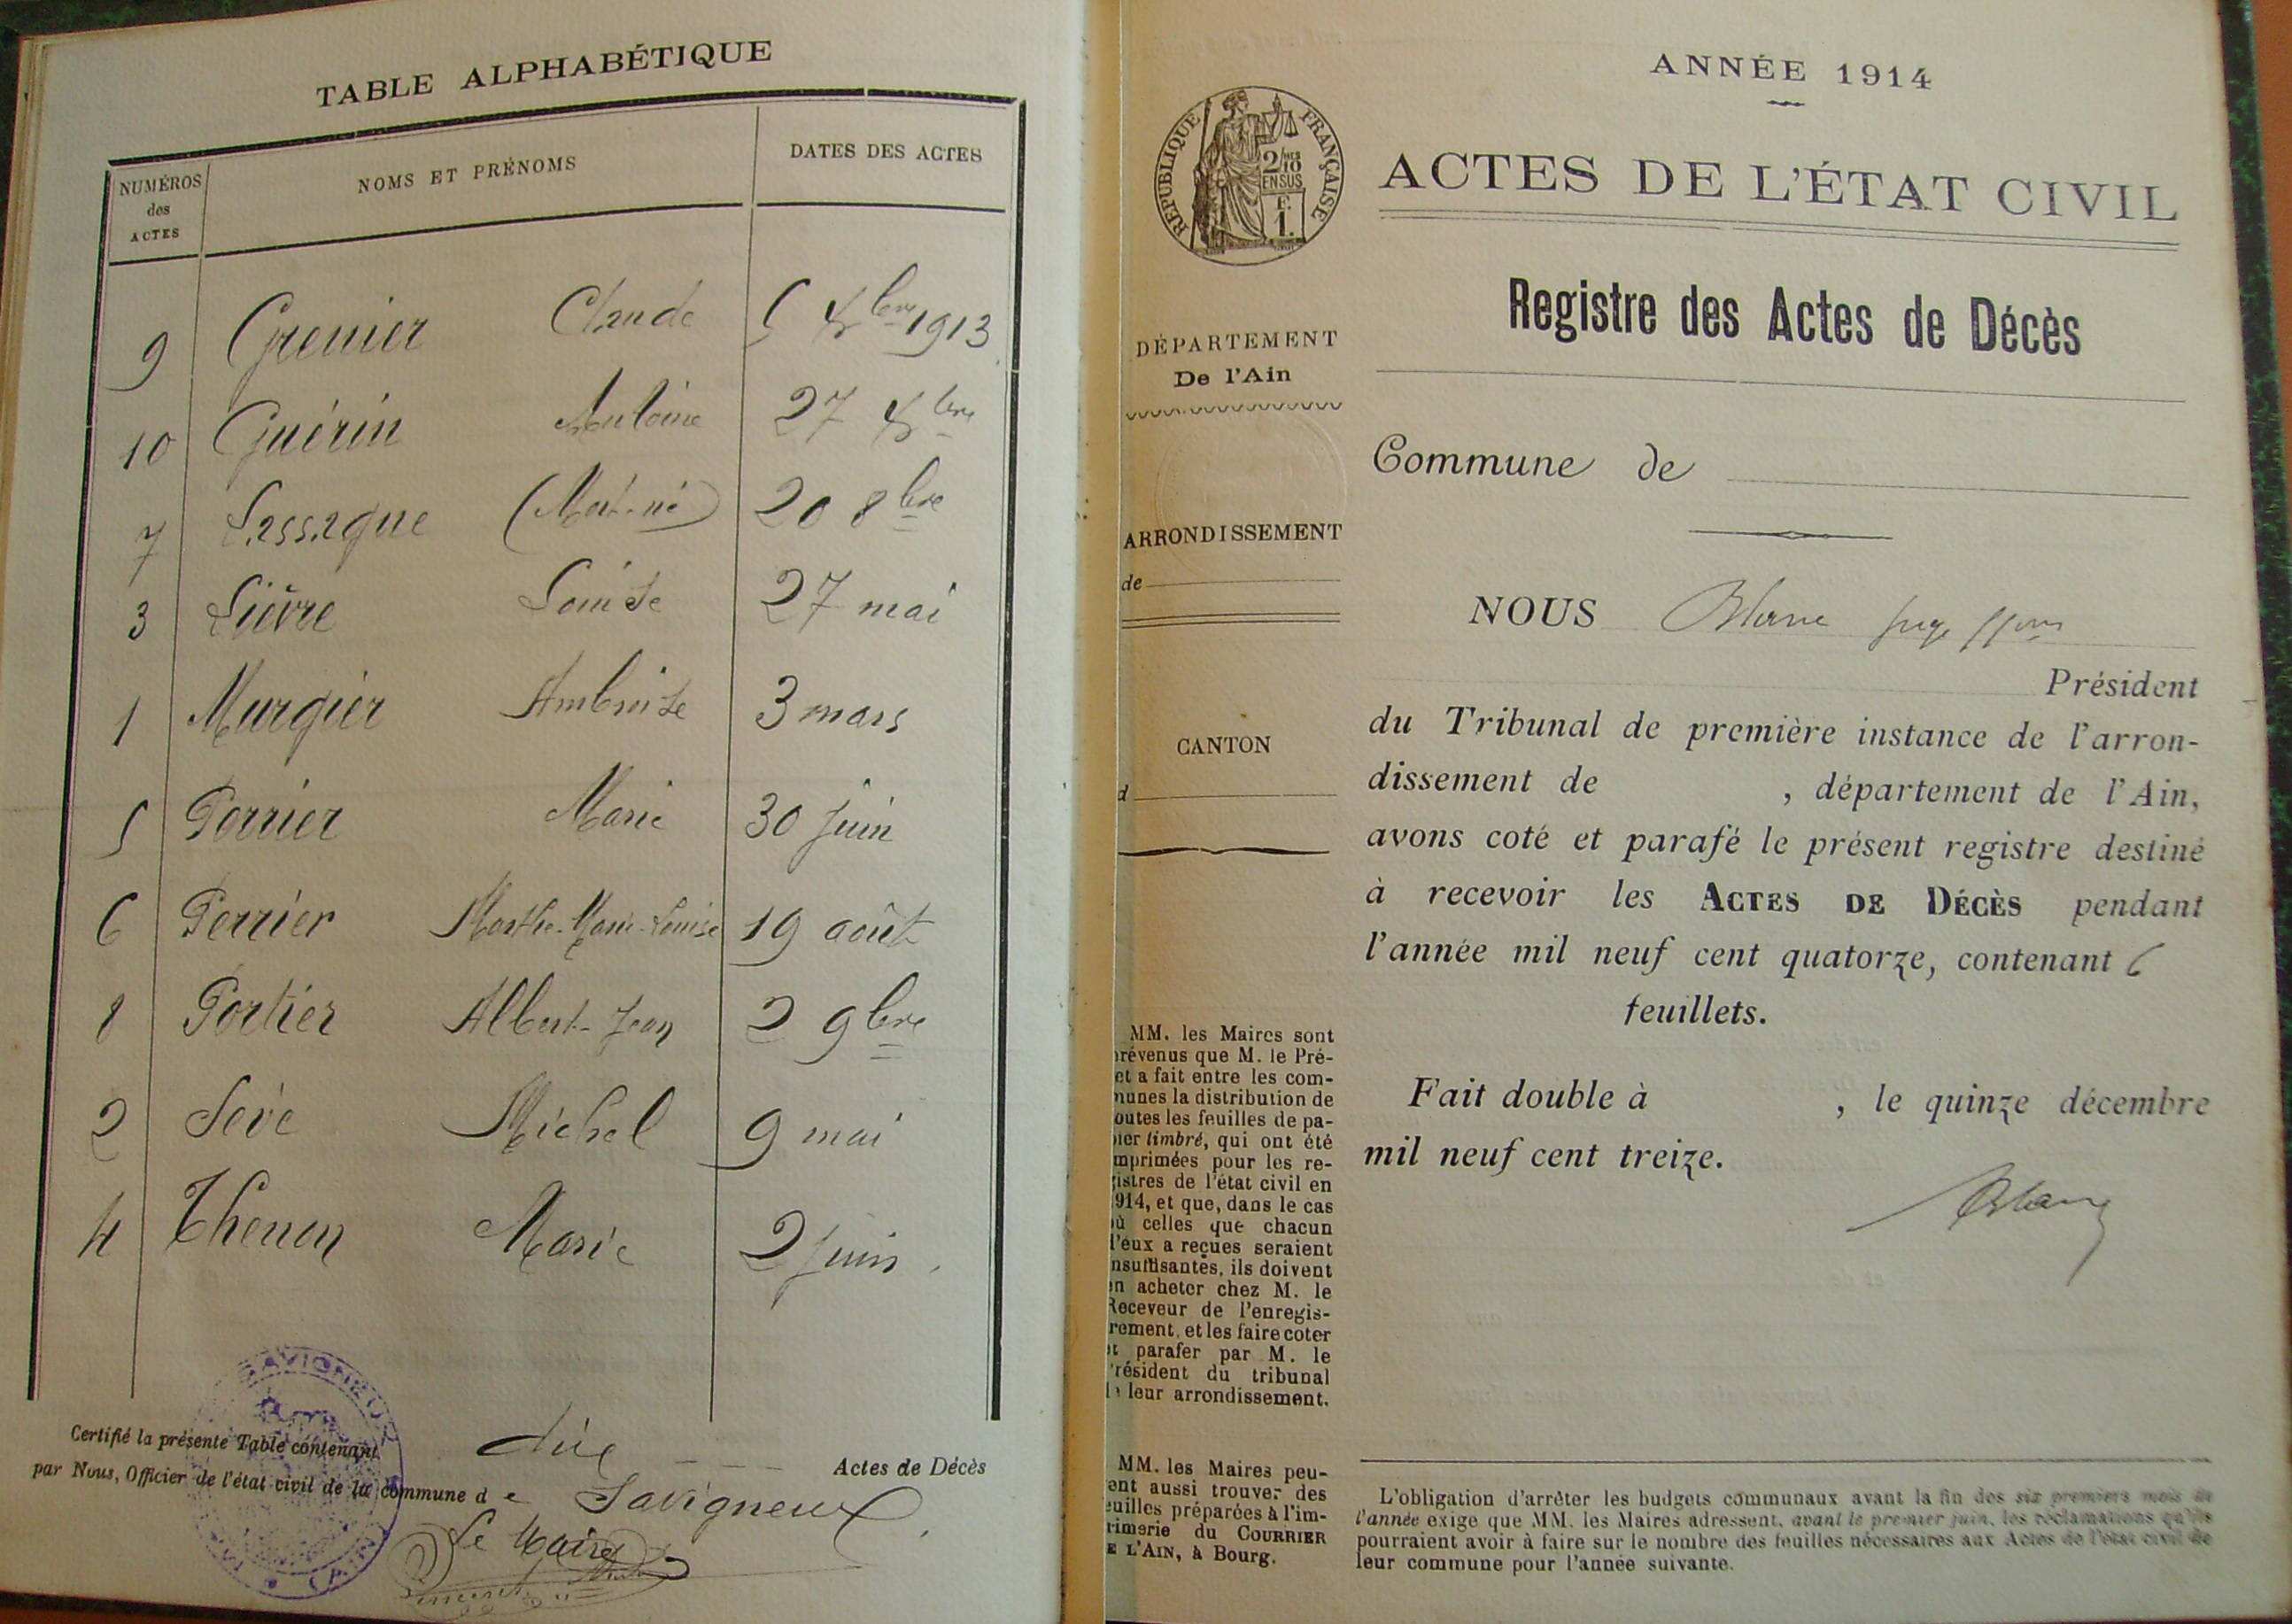 TABLE ALPHABÉTIQUE
NUMÉROS
des
ACTES
NOMS ET PRÉNOMS
DATES DES ACTES
9 Grenier Claude 5 Xbre 1913
10 Guérin Antoine 27 Xbre
7 Lassague (Mort-né) 20 8bre
3 Lièvre Louise 27 mai
1 Murgier Ambroise 3 mars
5 Perrier Marie 30 juin
6 Perrier Marthe-Marie-Louise 19 août
8 Portier Albert-Jean 2 9bre
2 Sève Michel 9 mai
4 Thenon Marie 2 juin
Certifié la présente Table contenant dix Actes de Décès
par Nous, Officier de l'état civil de la commune de Savigneux
Le Maire
ANNÉE 1914
RÉPUBLIQUE FRANÇAISE
2/10
EN SUS
F.
1.
ACTES DE L'ÉTAT CIVIL
Registre des Actes de Décès
DÉPARTEMENT
De l'Ain
Commune de
ARRONDISSEMENT
de
CANTON
d
NOUS Blanc juge
Président
du Tribunal de première instance de l'arron-
dissement de , département de l'Ain,
avons coté et parafé le présent registre destiné
à recevoir les ACTES DE DÉCÈS pendant
l'année mil neuf cent quatorze, contenant 6
feuillets.
Fait double à , le quinze décembre
mil neuf cent treize.
Blanc
MM. les Maires sont
révenus que M. le Pré-
et a fait entre les com-
munes la distribution de
outes les feuilles de pa-
ier timbré, qui ont été
mprimées pour les re-
istres de l'état civil en
914, et que, dans le cas
ù celles que chacun
d'eux a reçues seraient
nsuffisantes, ils doivent
en acheter chez M. le
Receveur de l'enregis-
rement, et les faire coter
et parafer par M. le
résident du tribunal
de leur arrondissement.
MM. les Maires peu-
ent aussi trouver des
euilles préparées à l'im-
rimerie du COURRIER
E L'AIN, à Bourg.
L'obligation d'arrêter les budgets communaux avant la fin des six premiers mois de
l'année exige que MM. les Maires adressent, avant le premier juin, les réclamations qu'ils
pourraient avoir à faire sur le nombre des feuilles nécessaires aux Actes de l'état civil de
leur commune pour l'année suivante.